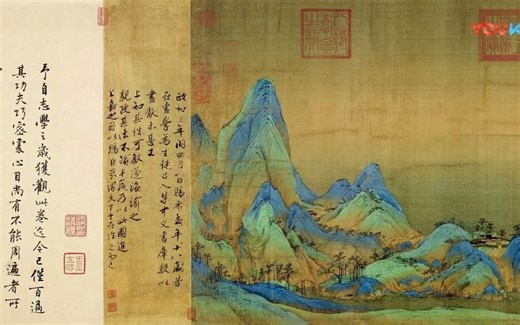 YOUK
政和三年閏四月八日賜希孟年十八歲昔
在畫學為生徒召入禁中文書庫數以
畫獻未甚工
上知其性可教遂誨諭之
親授其法不踰半歲乃以此圖進
上嘉之因以賜臣京謂天下士在作之而已
予自志學之歲獲觀此卷迄今已僅百過
其功夫巧密處心目尚有不能周遍者所